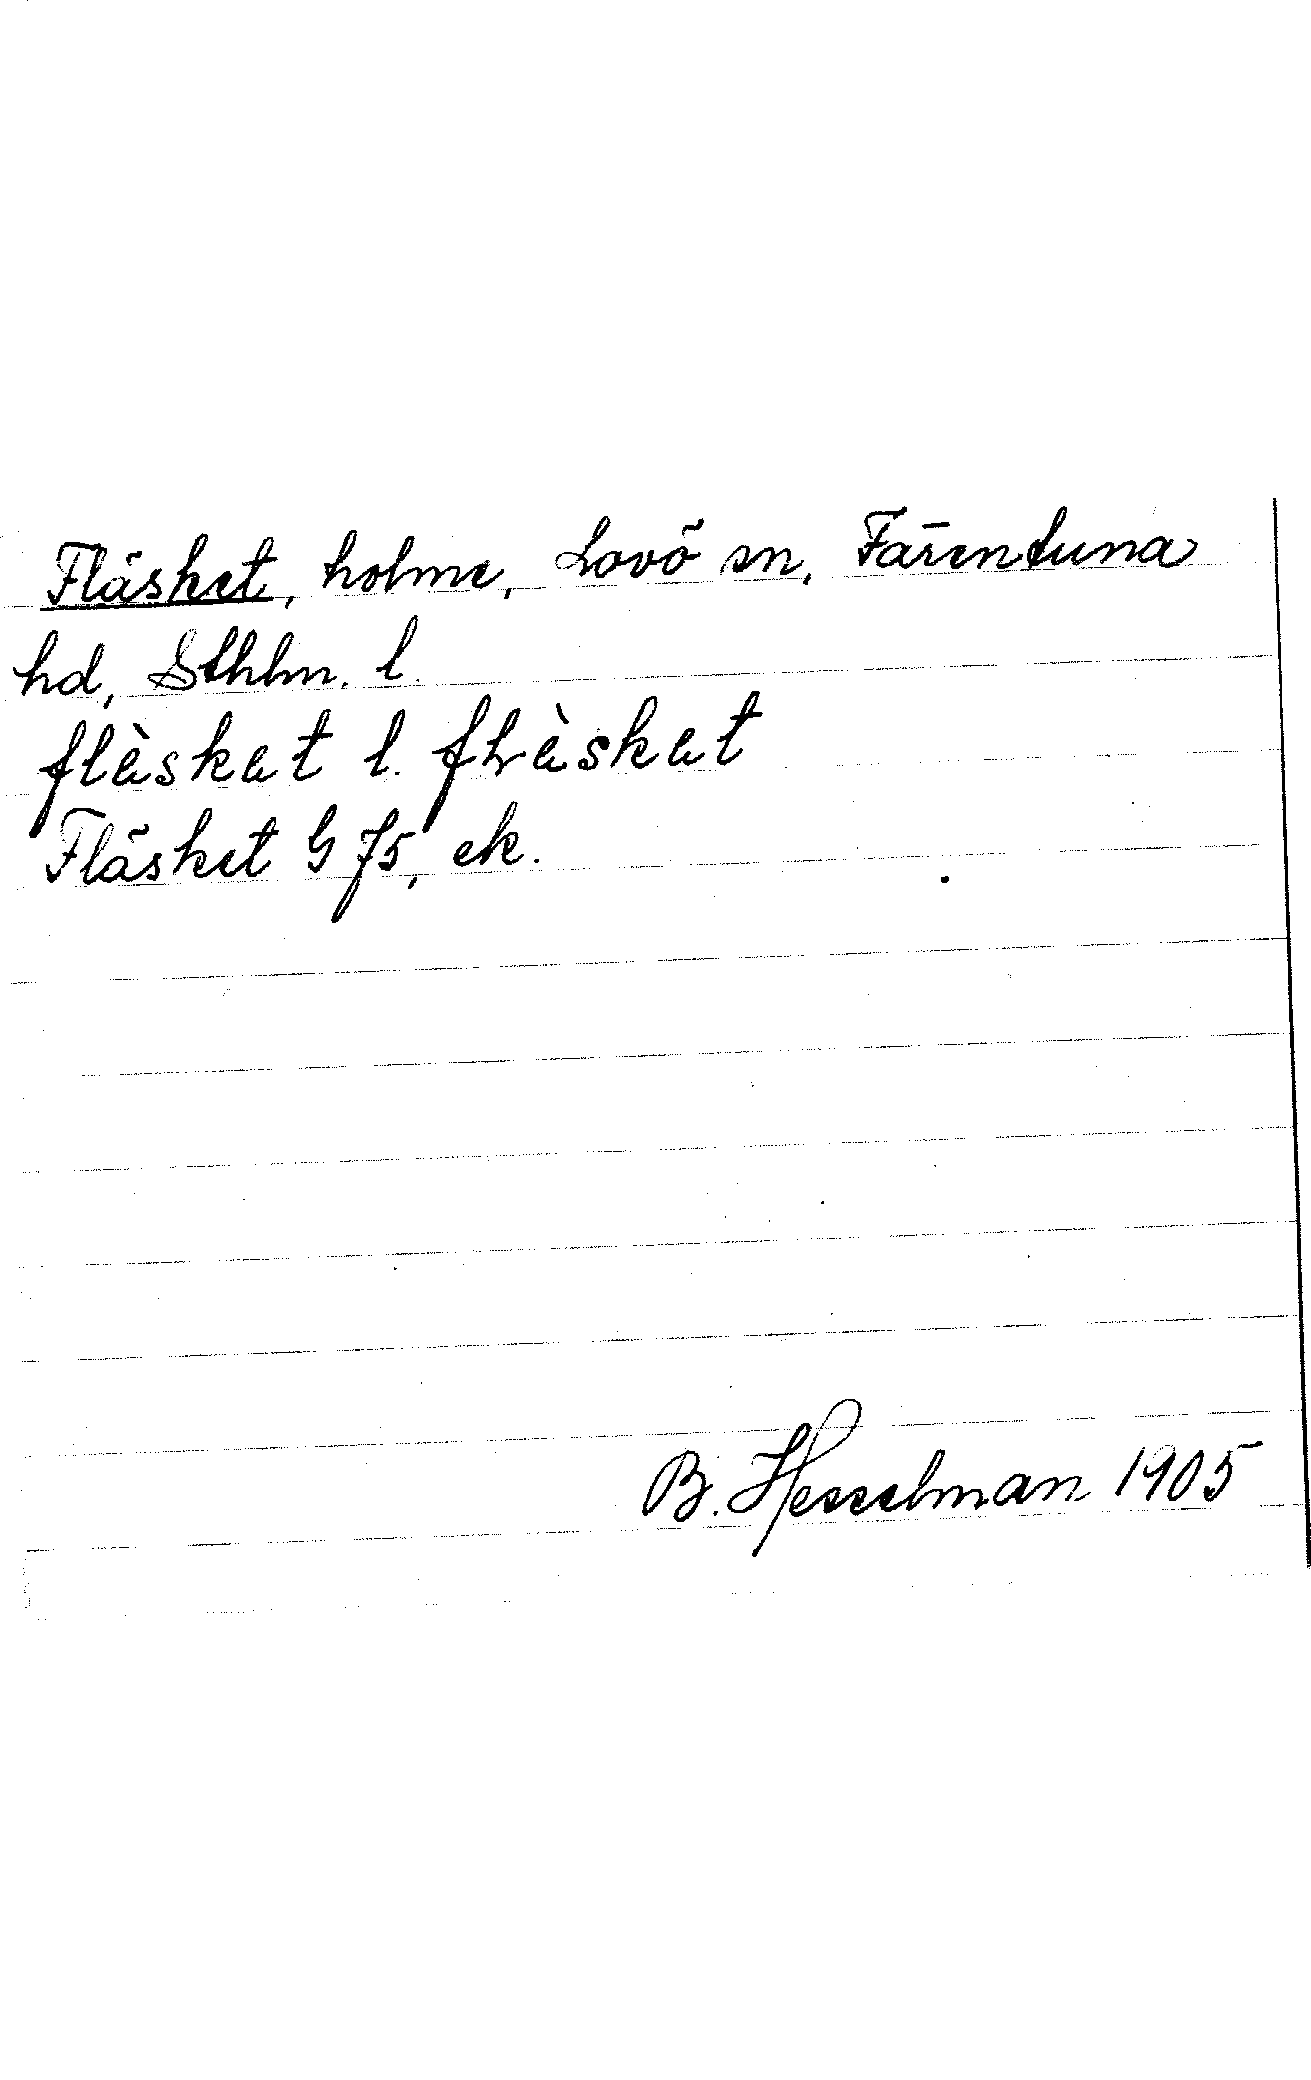 Fläsket, holme, Lovö sn, Färentuna
hd, Sthlm. l.
flèsket l. fLèsket
Fläsket G 75, ek.
B. Hesselman 1905